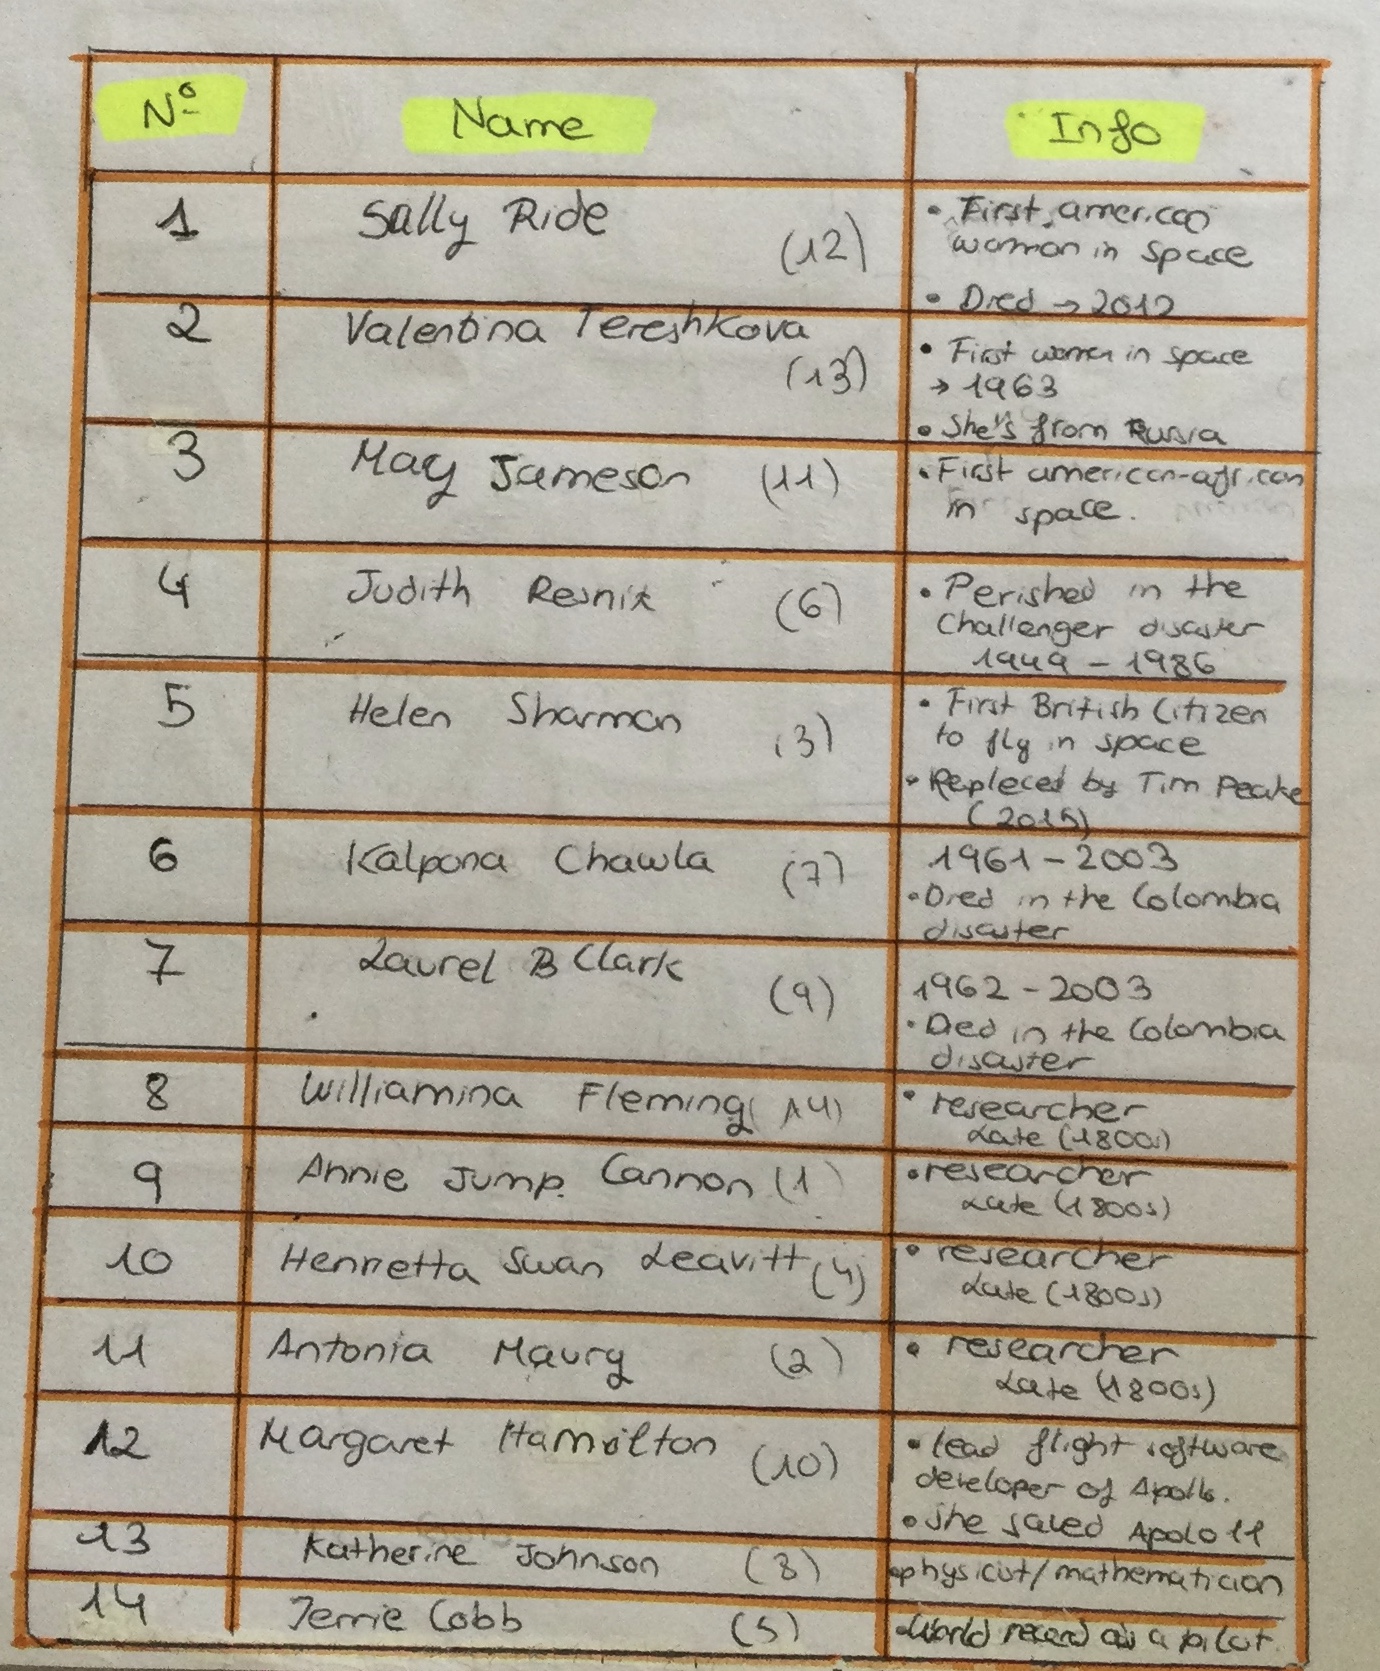 Nº Name Info
1 Sally Ride (12)
• First american
woman in space
• Died → 2012
2 Valentina Tereshkova (13)
• First women in space
→ 1963
• She's from Russia
3 May Jameson (11)
• First american-african
in space.
4 Judith Resnik (6)
• Perished in the
Challenger disaster
1949 - 1986
5 Helen Sharman (3)
• First British Citizen
to fly in space
• Repleced by Tim Peake
(2015)
6 Kalpana Chawla (7)
1961 - 2003
• Died in the Colombia
disaster
7 Laurel B Clark (9)
1962 - 2003
• Died in the Colombia
disaster
8 Williamina Fleming (14)
• researcher
Late (1800s)
9 Annie Jump Cannon (1)
• researcher
Late (1800s)
10 Henrietta Swan Leavitt (4)
• researcher
Late (1800s)
11 Antonia Maury (2)
• researcher
Late (1800s)
12 Margaret Hamilton (10)
• lead flight software
developer of Apollo.
• she saved Apolo 11
13 Katherine Johnson (8)
• physicist/mathematician
14 Jerrie Cobb (5)
• World record as a pilot